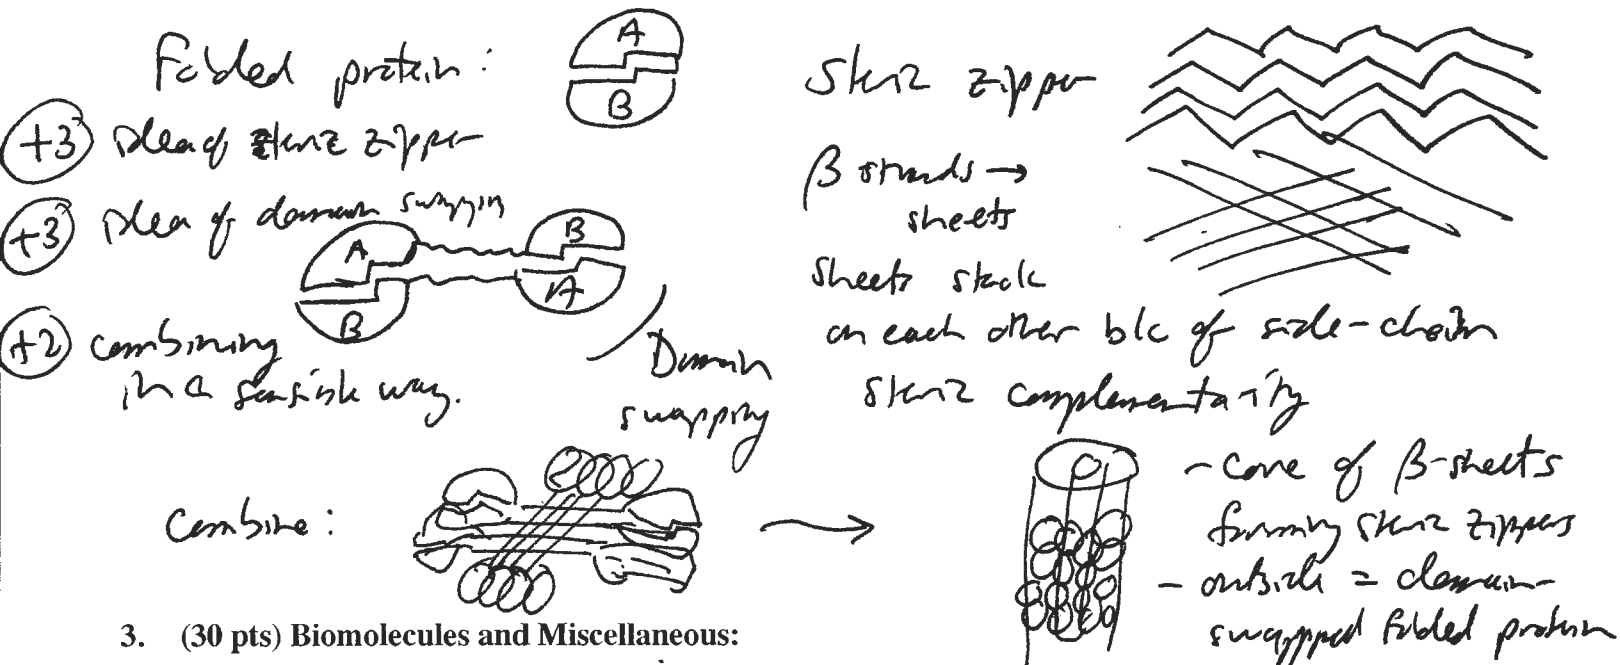 Folded protein:
A
B
+3 idea of steric zipper
+3 idea of domain swapping
A
B
B
A
+2 combining
in a sensible way.
Domain
swapping
Steric zipper
β strands →
sheets
Sheets stack
on each other b/c of side-chain
steric complementarity
Combine:
- Core of β-sheets
forming steric zippers
- outside = domain-
swapped folded protein
3. (30 pts) Biomolecules and Miscellaneous: